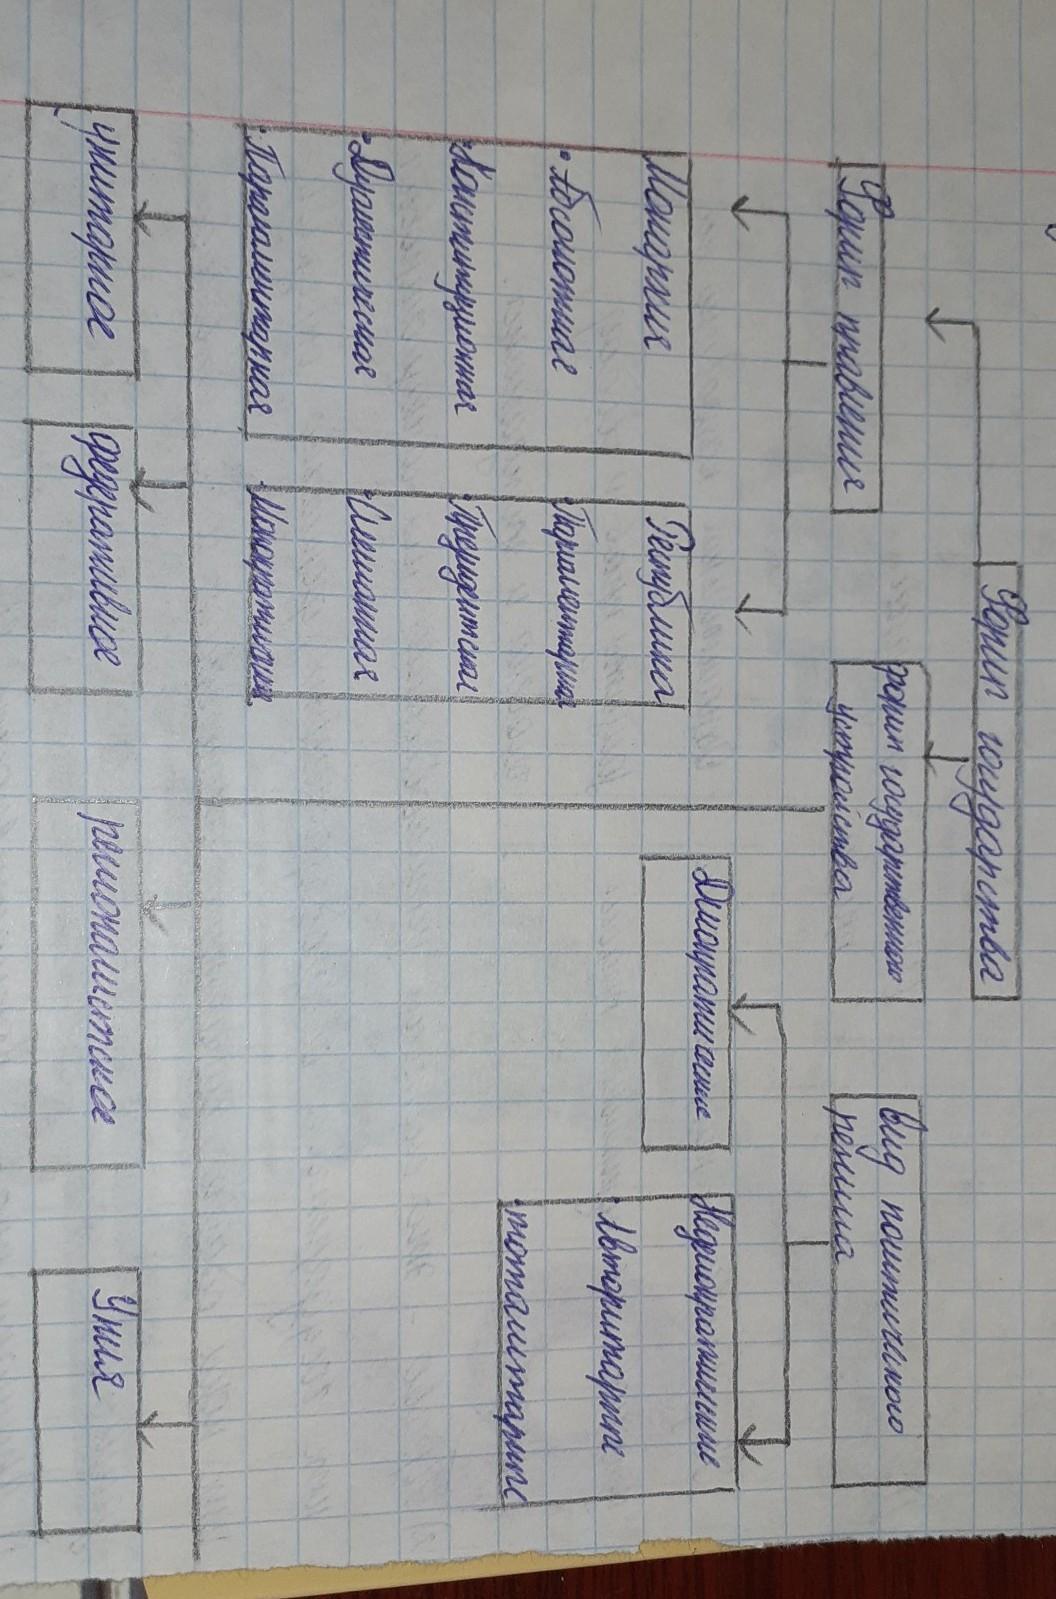 Формы государства
Формы правления
формы государственного
устройства
вид политического
режима
Монархия
• Абсолютная
• Конституционная
• Дуалистическая
• Парламентарная
Республика
• Парламентарная
• Президентская
• Смешанная
Демократические
Недемократические
• Авторитарные
• тоталитарные
унитарное
федеративное
регионалистское
Уния